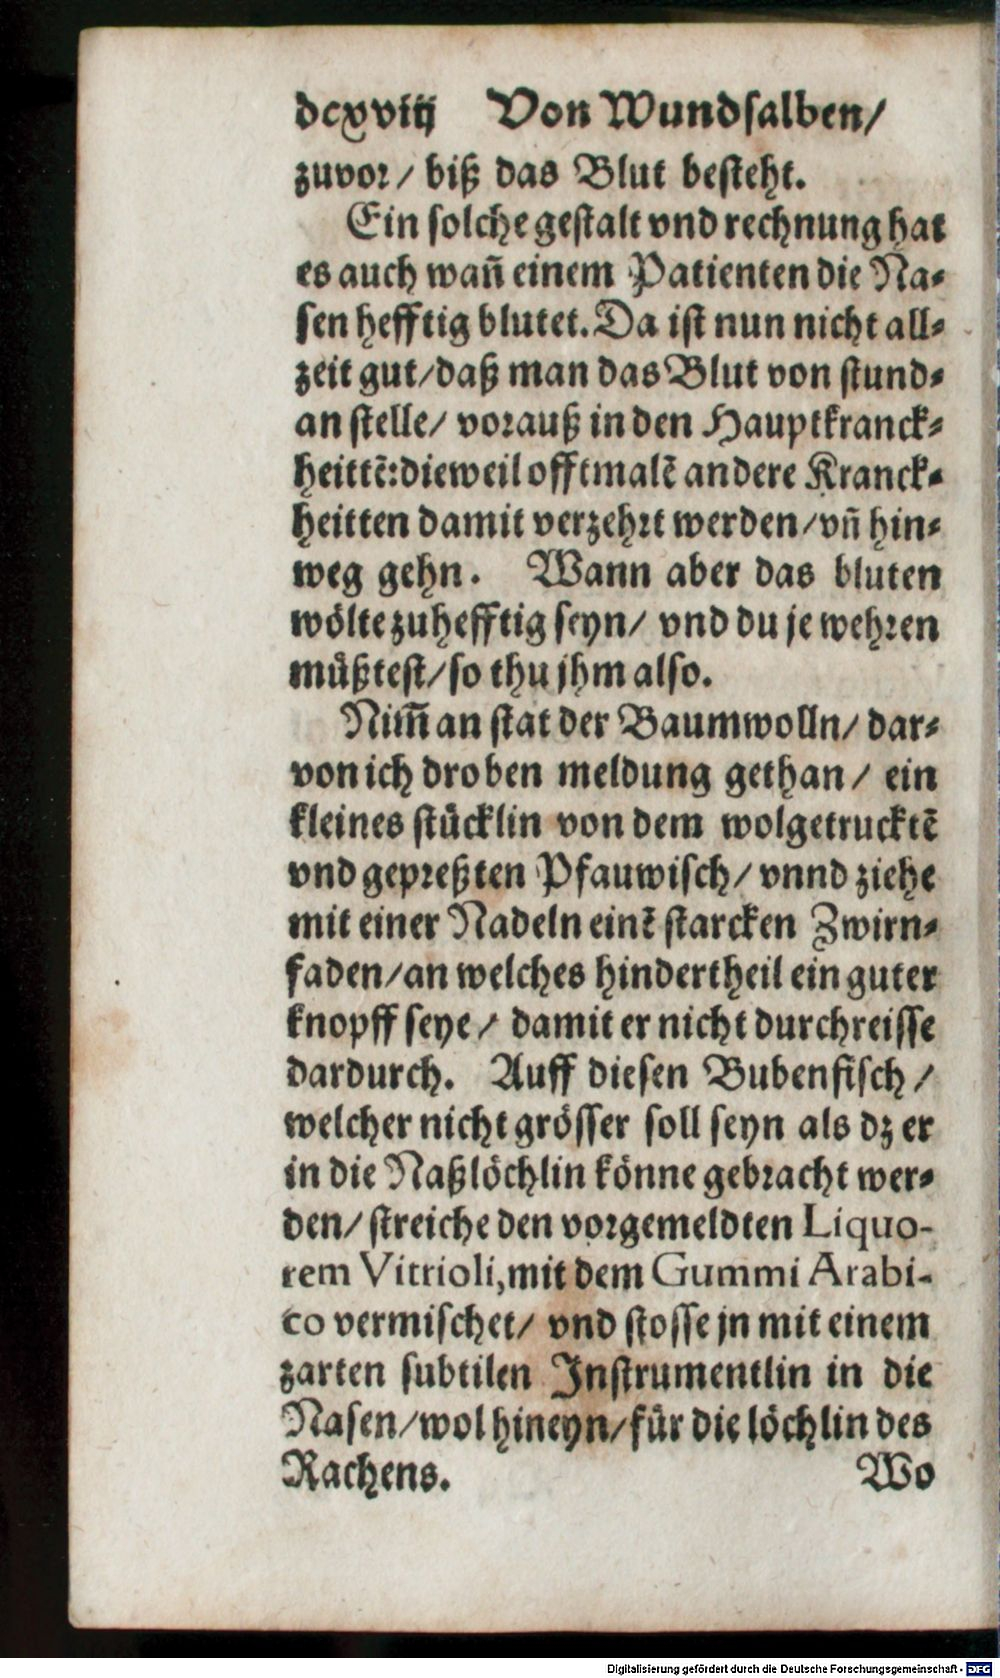 dcxviij Von Wundsalben/
zuvor/ biß das Blut besteht.
Ein solche gestalt vnd rechnung hat
es auch wañ einem Patienten die Na-
sen hefftig blutet. Da ist nun nicht all-
zeit gut/daß man das Blut von stund-
an stelle/ vorauß in den Hauptkranck-
heittē: dieweil offtmalē andere Kranck-
heitten damit verzehrt werden/vñ hin-
weg gehn. Wann aber das bluten
wölte zu hefftig seyn/ vnd du je wehren
müßtest/so thu jhm also.
Nim̄ an stat der Baumwolln/ dar-
von ich droben meldung gethan/ ein
kleines stücklin von dem wolgetrucktē
vnd gepreßten Pfauwisch/ vnnd ziehe
mit einer Nadeln einē starcken Zwirn-
faden/an welches hindertheil ein guter
knopff seye/ damit er nicht durchreisse
dardurch. Auff diesen Bubenfisch/
welcher nicht grösser soll seyn als dz er
in die Naßlöchlin könne gebracht wer-
den/ streiche den vorgemeldten Liquo-
rem Vitrioli, mit dem Gummi Arabi-
co vermischet/ vnd stosse jn mit einem
zarten subtilen Instrumentlin in die
Nasen/wol hineyn/für die löchlin des
Rachens. Wo
Digitalisierung gefördert durch die Deutsche Forschungsgemeinschaft - DFG